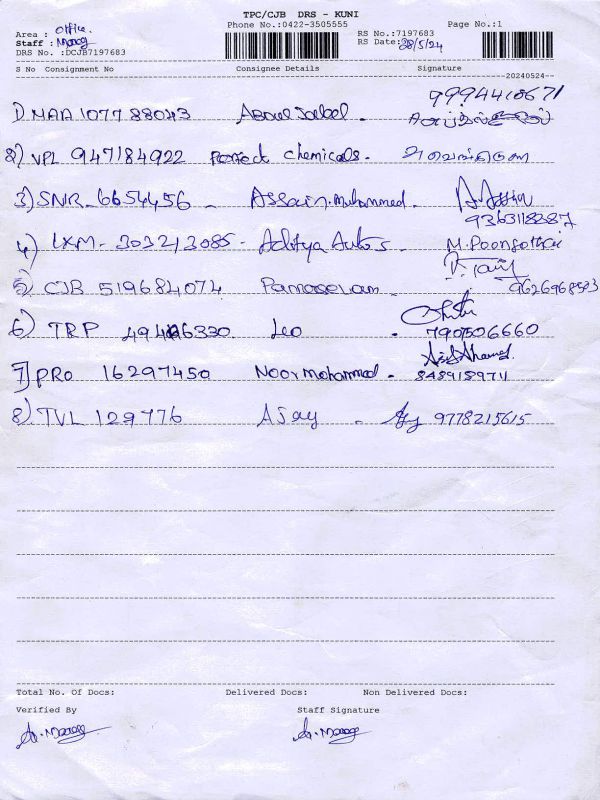 TPC/CJB DRS - KUNI
Phone No.:0422-3505555 Page No.:1
Area : Office
Staff :
DRS No. :DCJB7197683
RS No.:7197683
RS Date: 28/5/24
S No Consignment No Consignee Details Signature
20240524
9994410671
1) MAA 107788043
2) VPL 947184922 Perfect Chemicals.
3) SNR 6654456 - Assain Muhammed.
9363118287
4) LXM - 303213085 - Aditya Autos - M. Poongothai
5) CJB 519684074 9626968583
6) TRP Leo - 790506660
7) PRO 16297450 Noor mohammed - 848918971
8) TVL 129776 AJay - 9778215615
Total No. Of Docs: Delivered Docs: Non Delivered Docs:
Verified By Staff Signature